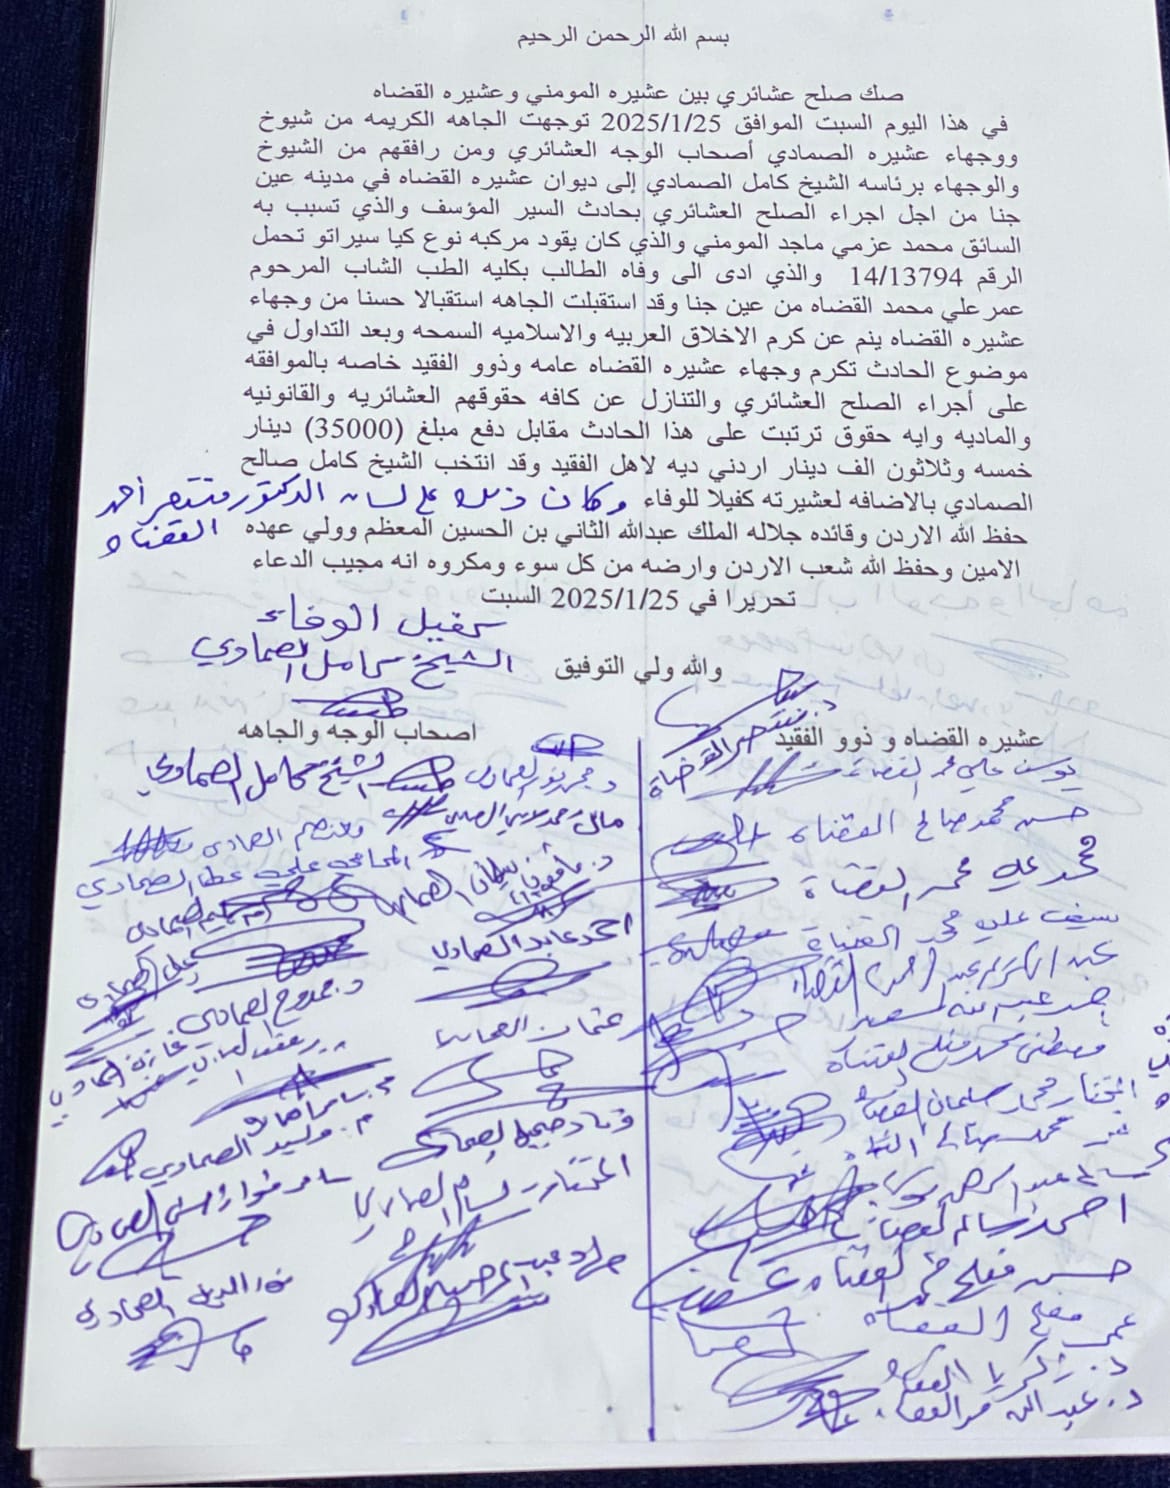 بسم الله الرحمن الرحيم
صك صلح عشائري بين عشيره المومني وعشيره القضاه
في هذا اليوم السبت الموافق 2025/1/25 توجهت الجاهه الكريمه من شيوخ
ووجهاء عشيره الصمادي أصحاب الوجه العشائري ومن رافقهم من الشيوخ
والوجهاء برئاسه الشيخ كامل الصمادي إلى ديوان عشيره القضاه في مدينه عين
جنا من اجل اجراء الصلح العشائري بحادث السير المؤسف والذي تسبب به
السائق محمد عزمي ماجد المومني والذي كان يقود مركبه نوع كيا سيراتو تحمل
الرقم 14/13794 والذي ادى الى وفاه الطالب بكليه الطب الشاب المرحوم
عمر علي محمد القضاه من عين جنا وقد استقبلت الجاهه استقبالا حسنا من وجهاء
عشيره القضاه ينم عن كرم الاخلاق العربيه والاسلاميه السمحه وبعد التداول في
موضوع الحادث تكرم وجهاء عشيره القضاه عامه وذوو الفقيد خاصه بالموافقه
على أجراء الصلح العشائري والتنازل عن كافه حقوقهم العشائريه والقانونيه
والماديه وايه حقوق ترتبت على هذا الحادث مقابل دفع مبلغ (35000) دينار
خمسه وثلاثون الف دينار اردني ديه لاهل الفقيد وقد انتخب الشيخ كامل صالح
الصمادي بالاضافه لعشيرته كفيلا للوفاء وكان ذلك على لسان الدكتور منتصر أحمد
القضاه
حفظ الله الاردن وقائده جلاله الملك عبدالله الثاني بن الحسين المعظم وولي عهده
الامين وحفظ الله شعب الاردن وارضه من كل سوء ومكروه انه مجيب الدعاء
تحريرا في 2025/1/25 السبت
كفيل الوفاء
الشيخ كامل الصمادي
والله ولي التوفيق
عشيره القضاه و ذوو الفقيد
د. منتصر القضاة
يوسف علي محمد القضاة
حسن محمد صالح القضاه
محمد علي محمد القضاة
سيف علي محمد القضاة
مصطفى محمد مفلح القضاة
المختار محمد سلمان القضاه
احمد سالم القضاة
حسن مفلح محمد القضاه
عمر مفلح القضاه
د. زكريا القضاه
د. عبدالله القضاه
اصحاب الوجه والجاهه
الشيخ كامل الصمادي
معتصم الصمادي
المحامي علي عطا الصمادي
احمد عابد الصمادي
علي الصمادي
د. ممدوح الصمادي
عثمان الصمادي
م. وليد الصمادي
المختار بسام الصمادي
نور الدين الصمادي